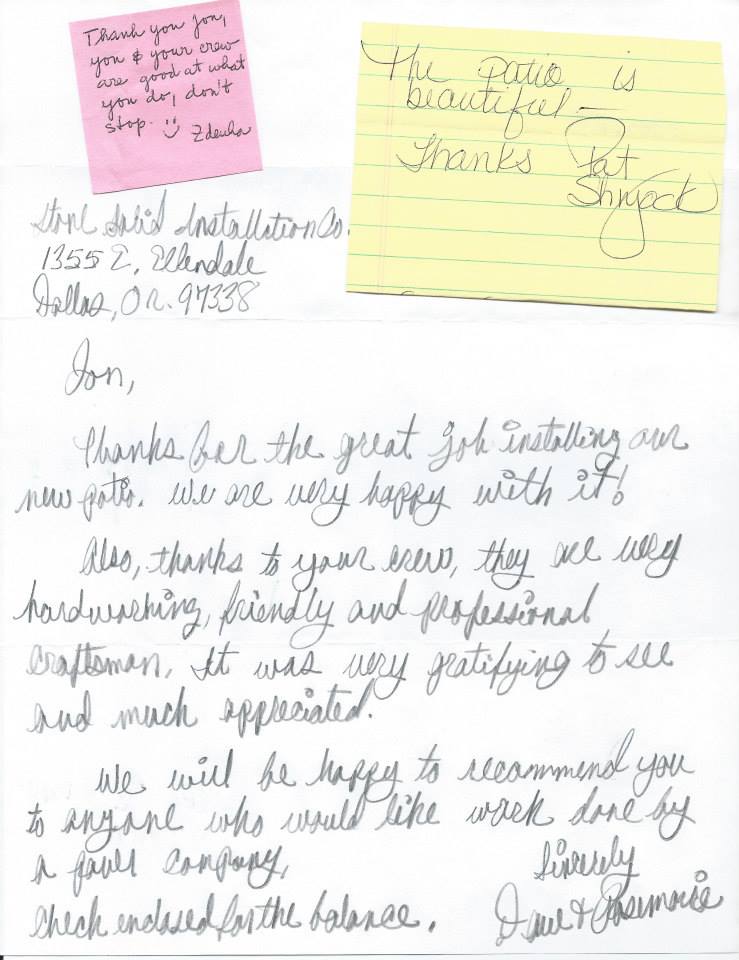 Thank you Jon,
you & your crew
are good at what
you do, don't
stop. Zdenka
The patio is
beautiful —
Thanks Pat
Shryock
Stone Solid Installation Co.
1355 E. Ellendale
Dallas, OR. 97338
Jon,
Thanks for the great job installing our
new patio. We are very happy with it!
Also, thanks to your crew, they are very
hardworking, friendly and professional
craftsman. It was very gratifying to see
and much appreciated.
We will be happy to recommend you
to anyone who would like work done by
a paver company,
Sincerely
check enclosed for the balance. Dave & Rosemarie